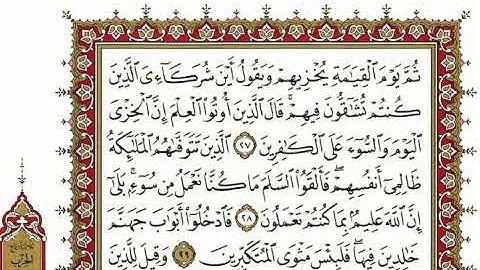 ثُمَّ يَوْمَ ٱلْقِيَٰمَةِ يُخْزِيهِمْ وَيَقُولُ أَيْنَ شُرَكَآءِىَ ٱلَّذِينَ
كُنتُمْ تُشَٰٓقُّونَ فِيهِمْ ۚ قَالَ ٱلَّذِينَ أُوتُوا۟ ٱلْعِلْمَ إِنَّ ٱلْخِزْىَ
ٱلْيَوْمَ وَٱلسُّوٓءَ عَلَى ٱلْكَٰفِرِينَ ٢٧ ٱلَّذِينَ تَتَوَفَّىٰهُمُ ٱلْمَلَٰٓئِكَةُ
ظَالِمِىٓ أَنفُسِهِمْ ۖ فَأَلْقَوُا۟ ٱلسَّلَمَ مَا كُنَّا نَعْمَلُ مِن سُوٓءٍۭ ۚ بَلَىٰٓ
إِنَّ ٱللَّهَ عَلِيمٌۢ بِمَا كُنتُمْ تَعْمَلُونَ ٢٨ فَٱدْخُلُوٓا۟ أَبْوَٰبَ جَهَنَّمَ
خَٰلِدِينَ فِيهَا ۖ فَلَبِئْسَ مَثْوَى ٱلْمُتَكَبِّرِينَ ٢٩ وَقِيلَ لِلَّذِينَ